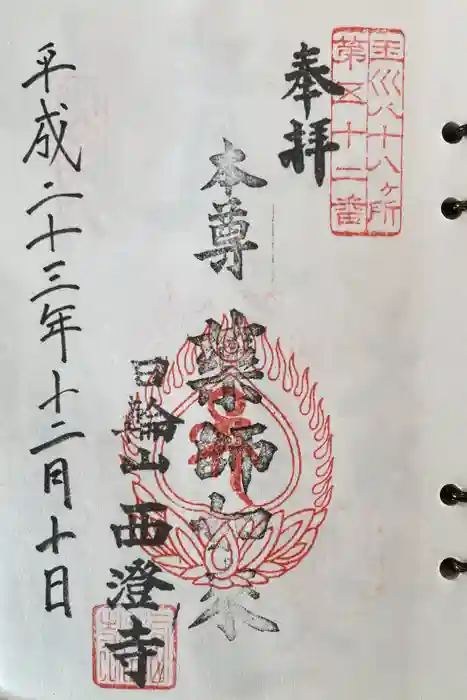 玉川八十八ヶ所
第五十二番
奉拝
本尊 薬師如来
日輪山 西澄寺
平成二十三年十二月十日